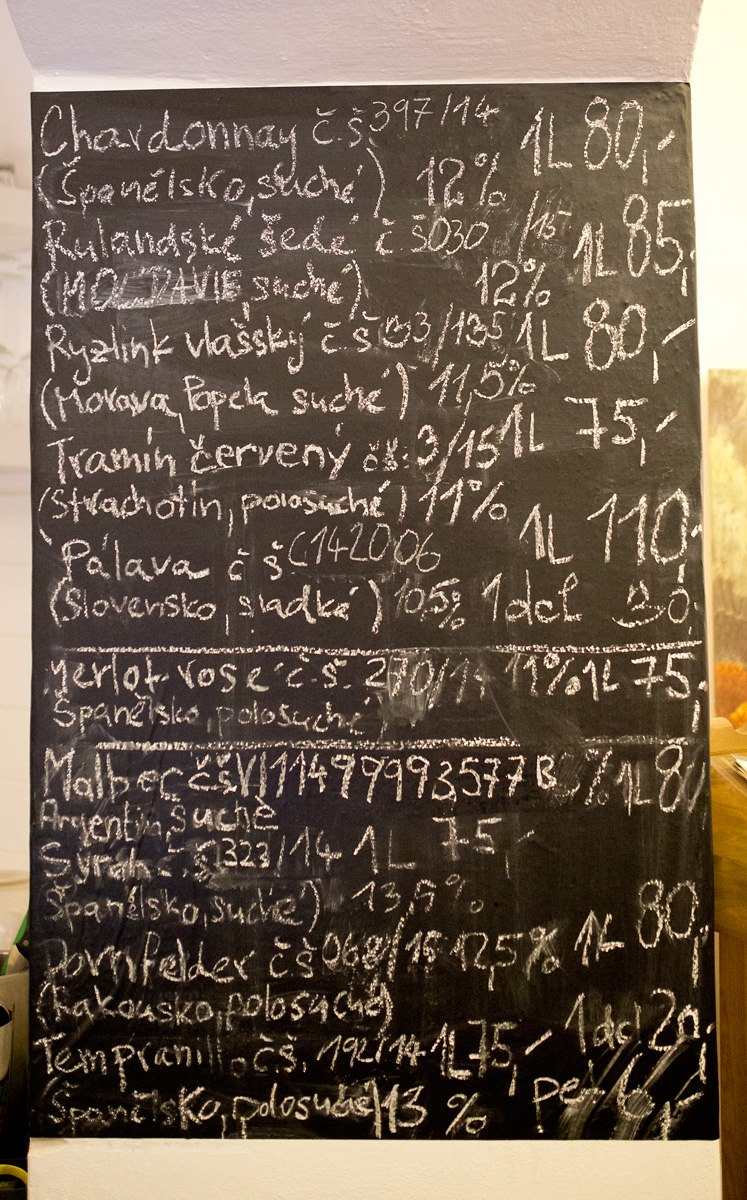 Chardonnay č.š. 397/14 1L 80,-
(Španělsko, suché) 12%
Rulandské šedé č š 030 /15 1L 85,-
(MOLDAVIE, suché) 12%
Ryzlink vlašský č š 33/135 1L 80,-
(Morava, Popela suché) 11,5%
Tramín červený čš. 3/15 1L 75,-
(Strachotín, polosuché) 11%
Pálava č š. C142006 1L 110,-
(Slovensko, sladké) 10,5% 1dcl 30
Merlot rosé č.š. 270/14 11% 1L 75,-
Španělsko, polosuché
Malbec čš VI11499993577B % 1L 8
Argentin, suché
Syrah č.š 323/14 1L 75,-
Španělsko, suché) 13,5%
Dornfelder čš 068/15 12,5% 1L 80,-
(Rakousko, polosuché)
Tempranillo č.š. 192/14 1L 75,- 1dcl 20,-
(Španělsko, polosuché) 13 % pet 6,-